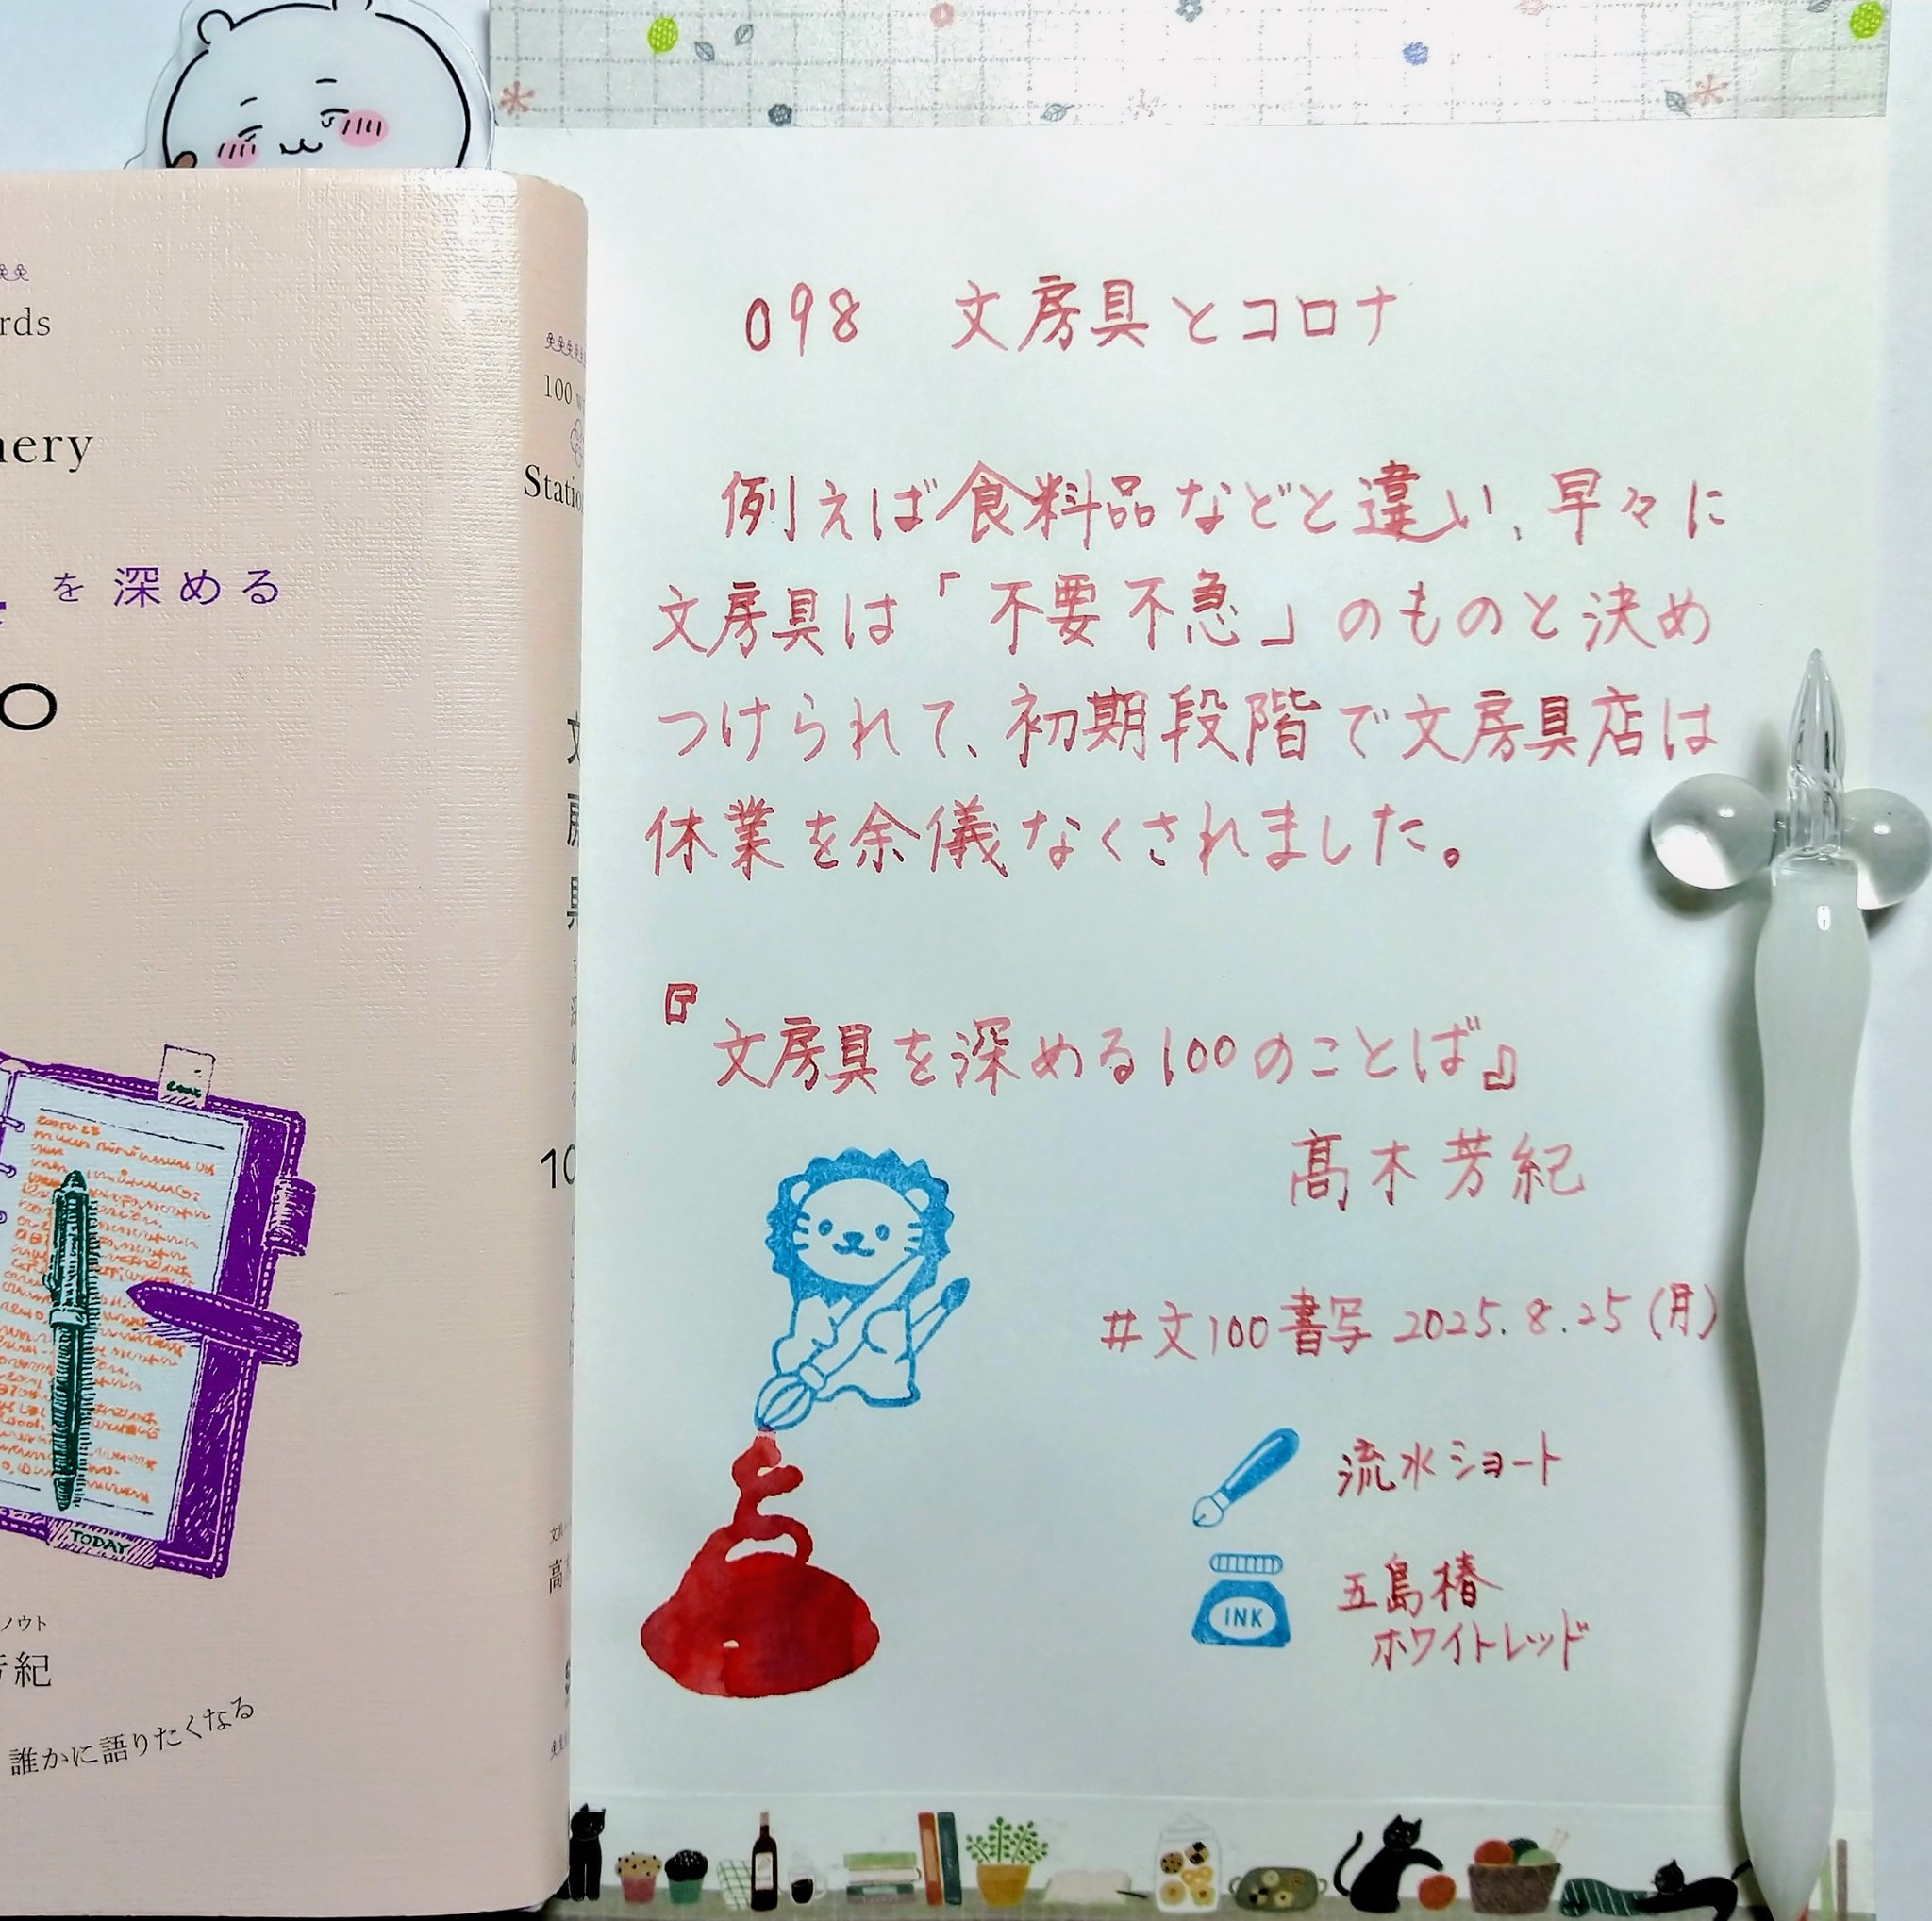 を深める
TODAY
ノウト
紀
誰かに語りたくなる
100
098 文房具とコロナ
例えば食料品などと違い、早々に
文房具は「不要不急」のものと決め
つけられて、初期段階で文房具店は
休業を余儀なくされました。
『文房具を深める100のことば』
髙木芳紀
#文100書写 2025.8.25(月)
流水ショート
INK
五島椿
ホワイトレッド